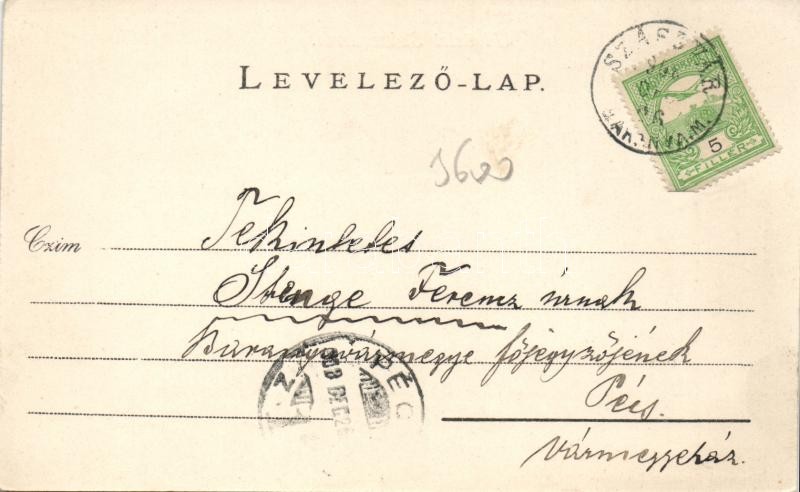 LEVELEZŐ-LAP.
SZÁSZVÁR
BARANYA.M.
5
FILLÉR
3600
Czim
Tekintetes
Stenge Ferencz úrnak
Baranyavármegye főjegyzőjének
Pécs.
Vármegyeház.
PÉCS